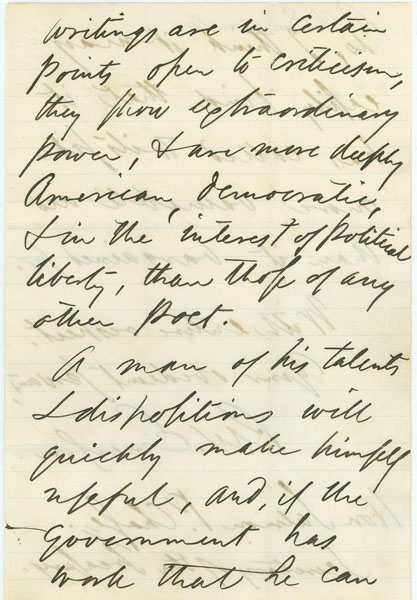 writings are in certain
points open to criticism,
they show extraordinary
power, & are more deeply
American, democratic,
& in the interest of political
liberty, than those of any
other poet.
A man of his talents
& dispositions will
quickly make himself
useful, and, if the
government has
work that he can